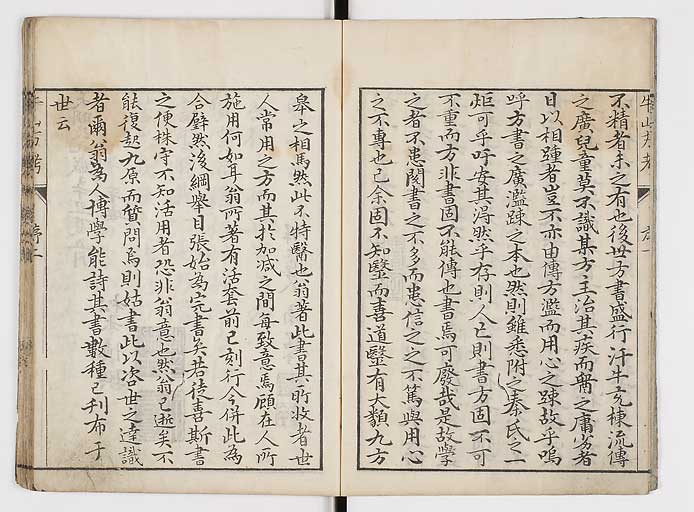 不精者未之有也後世方書盛行汗牛充棟流傳
之廣兒童莫不識某方主治某疾而醫之庸劣者
日以相踵者豈不亦由傳方濫而用心之疎故乎嗚
呼方書之廣濫疎之本也然則雖悉附之秦氏之一
炬可乎吁安其淂然乎存則人亡則書方固不可
不重而方非書固不能傳也書焉可廢哉是故學
之者不患閱書之不多而患信之之不篤與用心
之不專也已余固不知毉而喜道毉有大類九方
皋之相馬然此不特醫也翁著此書其所收者世
人常用之方而其於加減之間每致意焉顧在人所
施用何如耳翁所著有活套前已刻行今併此為
合壁然後綱擧目張始為完書矣若徒喜斯書
之便株守不知活用者恐非翁意也然翁已逝矣不
能復起九原而質問焉則姑書此以咨世之達識
者爾翁為人博學能詩其書數種已刊布于
世云
牛山方考
序一
序二